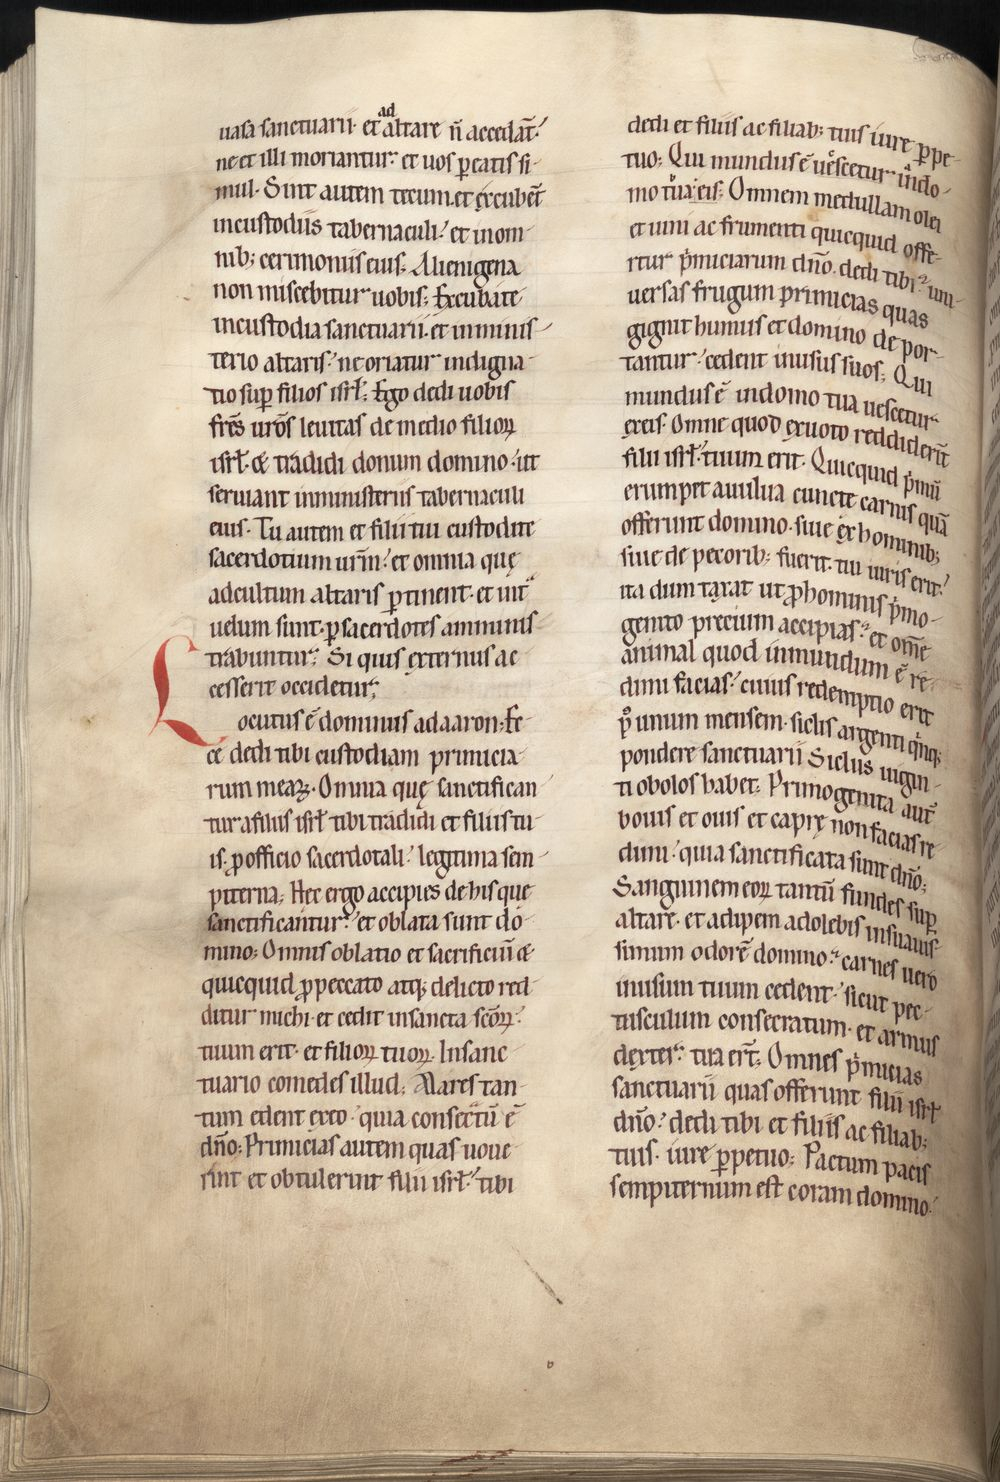 uasa sanctuarii· et ad altare ñ accedāt·'
ne et illi moriantur· et uos p̱eatis si-
mul· Sint autem tecum et excubēt
in custodiis tabernaculi·' et in om-
nib; cerimoniis eius; Alienigena
non miscebitur uobis; Excubate
in custodia sanctuarii· et in minis-
terio altaris·' ne oriatur indigna-
tio sup̱ filios isrł; Ego dedi uobis
fr̄es uros̄ leuitas de medio filioꝝ
isrł· & tradidi donum domino·' ut
seruiant in ministeriis tabernaculi
eius· Tu autem et filii tui custodite
sacerdotium urm̄·' et omnia quę
ad cultum altaris p̱tinent· et intᵃ
uelum sunt· p̱ sacerdotes aminnis-
trabuntur; Si quis externus ac
cesserit occidetur;
Locutus ē dominus ad aaron; Ec-
ce dedi tibi custodiam primicia-
rum meaꝝ· Omnia quę sanctifican-
tur a filiis isrł tibi tradidi et filiis tu-
is· ꝓ officio sacerdotali·' legitima sem-
piterna; Hec ergo accipies de his que
sanctificantur·' et oblata sunt do-
mino; Omnis oblatio et sacrificiū &
quicquid ꝓ peccato atq; delicto red-
ditur michi· et cedit in sancta sc̄oꝝ·'
tuum erit· et filioꝝ tuoꝝ· In sanc-
tuario comedes illud; Mares tan-
tum edent exeo·' quia consecratū ē
dño; Primicias autem quas uoue-
rint et obtulerint filii isrł·' tibi
dedi et filiis ac filiab; tuis iure p̱pe-
tuo; Qui mundus ē uescetur in do-
mo tua eis; Omnem medullam olei
et uini ac frumenti quicquid offe-
rtur pⁱmiciarum dño· dedi tibi·' uni-
uersas frugum primicias quas
gignit humus et domino depor-
tantur·' cedent in usus tuos; Qui
mundus ē in domo tua uescetur
ex eis· Omne quod ex uoto reddiderīt
filii isrł· tuum erit· Quicquid pⁱmū
erumpet a uulua cuncte carnis quā
offerunt domino· siue ex hominib;
siue de pecorib; fuerit· tui iuris erit·'
ita dum taxat ut ꝓ hominis pⁱmo-
genito precium accipias·' et om̄e
animal quod inmundum ē re-
dimi facias·' cuius redemptio erit
pᵒ unum mensem· siclis argenti qⁱnq;
pondere sanctuarii Siclus uigin-
ti obolos habet; Primogenita autᵉ̄
bouis et ouis et caprę non facias re-
dimi·' quia sanctificata sunt dño;
Sanguinem eoꝝ tantū fundes sup̱
altare· et adipem adolebis in suauis-
simum odorē domino·' carnes uero
in usum tuum cedent·' sicut pec-
tusculum consecratum· et armus
dexter·' tua er̄t; Omnes pⁱmicias
sanctuarii quas offerunt filii isrł
dño·' dedi tibi et filiis ac filiab;
tuis· iure p̱petuo; Pactum pacis
sempiternum est coram domino·